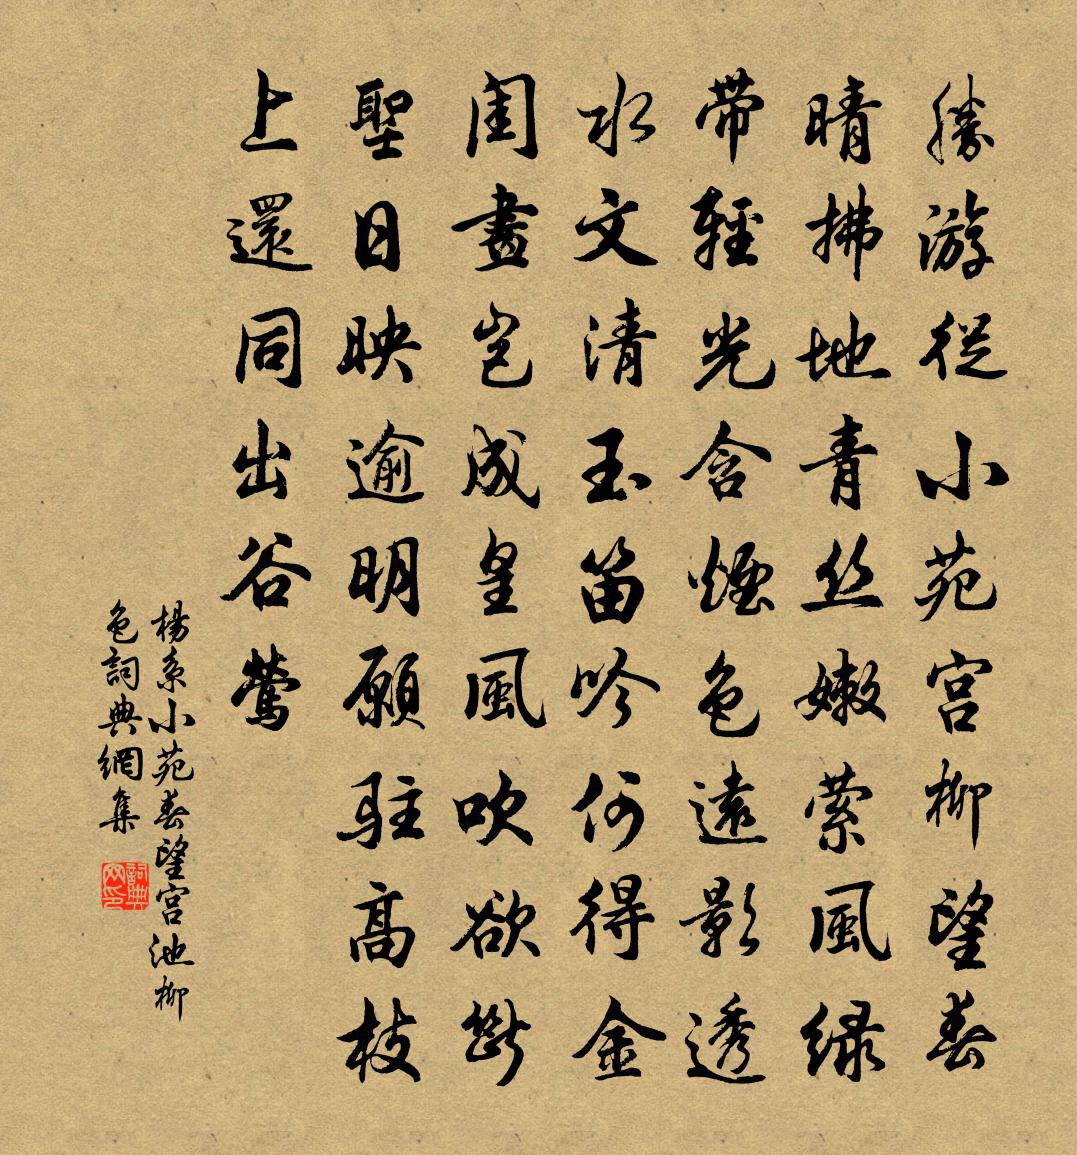 勝游從小苑宮柳望春
晴拂地青丝嫩萦風绿
帶輕光含煙色遠影透
水文清玉笛吟何得金
閨畫岂成皇風吹欲斷
聖日映逾明願駐高枝
上還同出谷莺
楊系小苑春望宮池柳
色詞典網集
詞典
网印